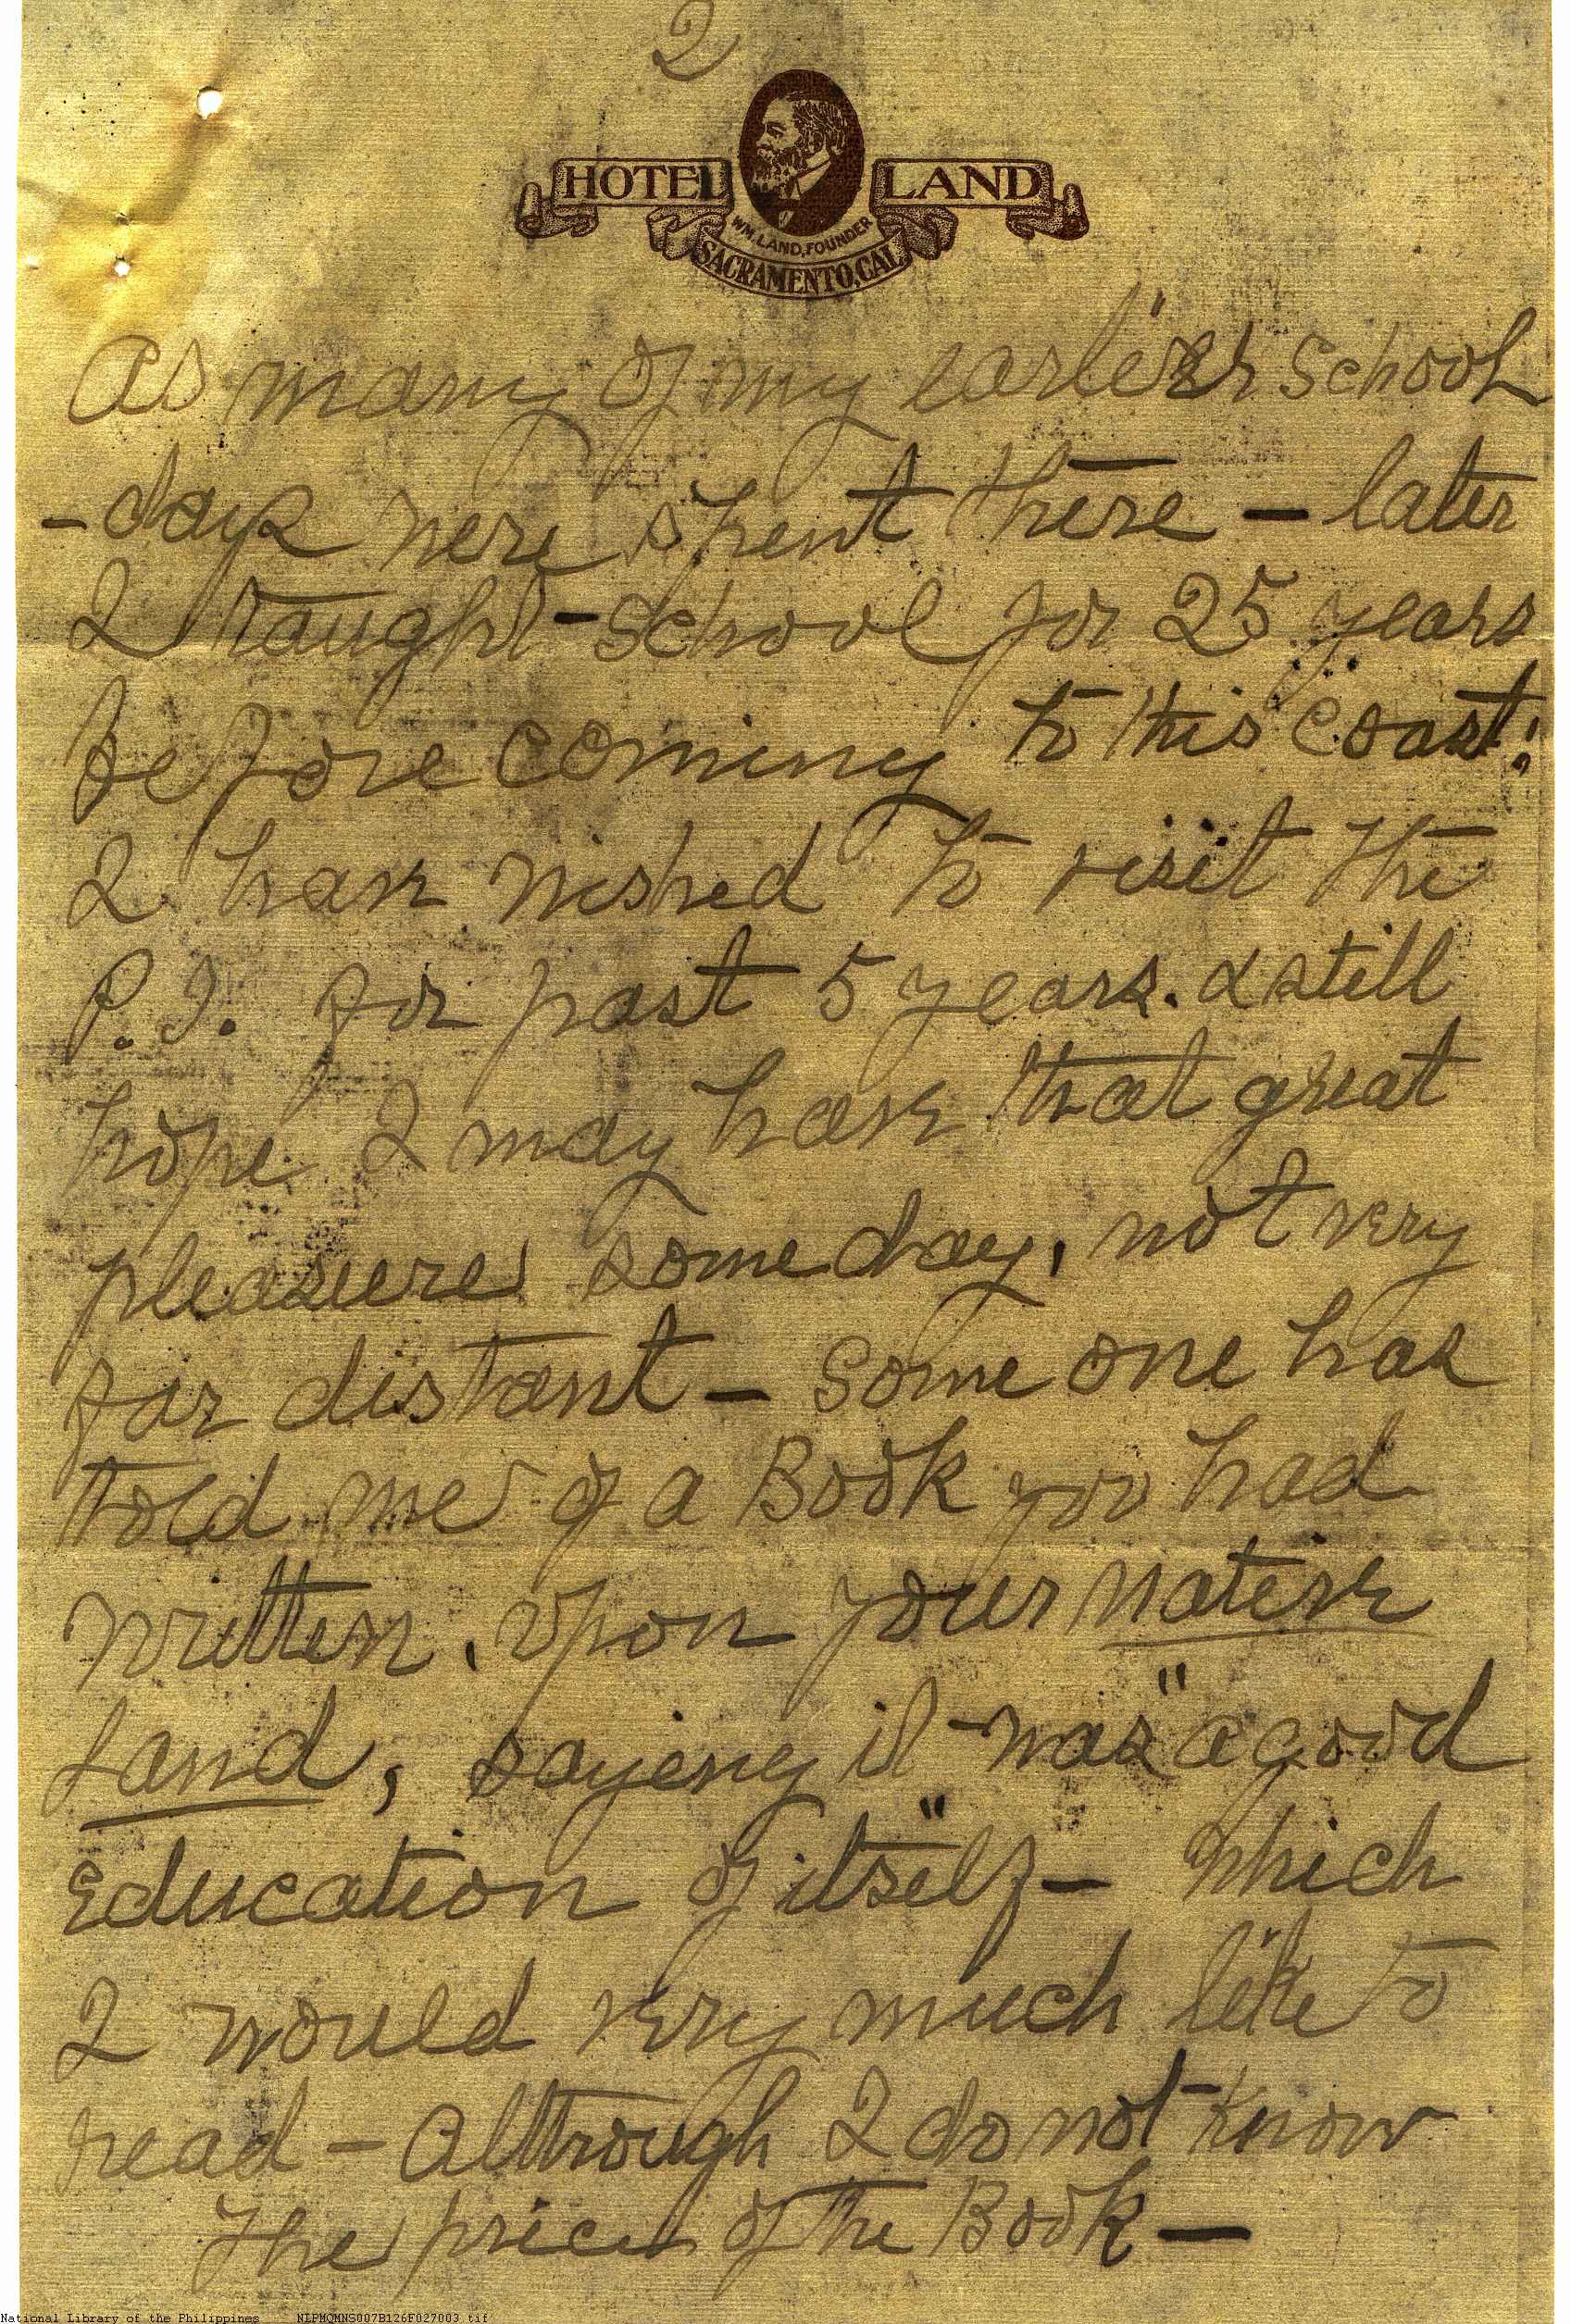 2
HOTEL LAND
WM. LAND, FOUNDER
SACRAMENTO, CAL
As many of my earlier school
-days were spent there — later
I taught-school for 25 years
before coming to this coast.
I have wished to visit the
P. I. for past 5 years. & still
hope I may have that great
pleasure some day, not very
far distant — Some one has
told me of a Book you had
written, upon your native
Land, saying it was "a good
Education of itself" — which
I would very much like to
read — Although I do not know
the price of the Book —
National Library of the Philippines NLPMQMNS007B126F027003.tif